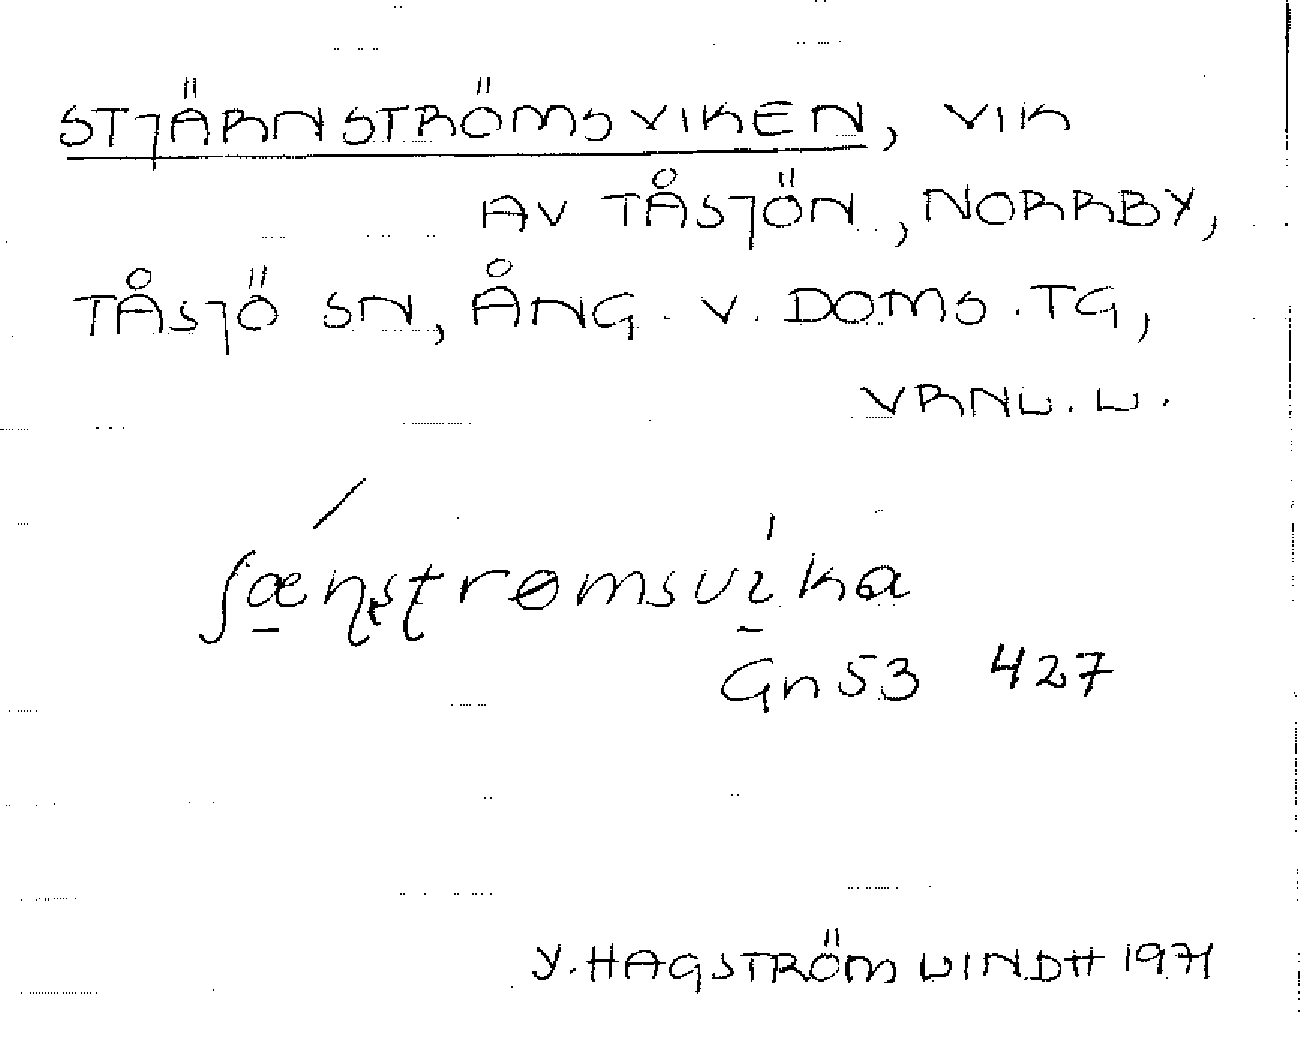 STJÄRNSTRÖMSVIKEN, VIK
AV TÅSJÖN, NORRBY,
TÅSJÖ SN, ÅNG. V. DOMS. TG,
VRNL. L.
ʃæɳʂʈrømsvika
Gn 53 427
Y. HAGSTRÖM LINDH 1971